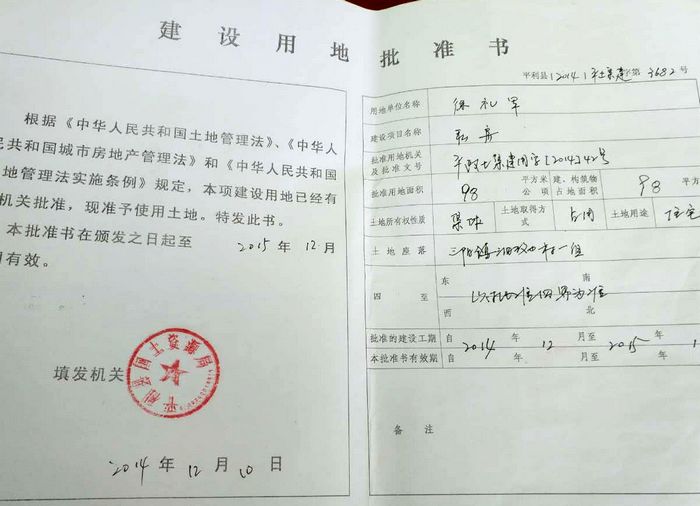 建设用地批准书
根据《中华人民共和国土地管理法》、《中华人
民共和国城市房地产管理法》和《中华人民共和国
地管理法实施条例》规定，本项建设用地已经有
机关批准，现准予使用土地。特发此书。
本批准书在颁发之日起至 2015 年 12 月
有效。
填发机关
平利县国土资源局
2014 年 12 月 10 日
平利县[2014]平土集建字第 3682 号
用地单位名称 徐礼军
建设项目名称 私房
批准用地机关及批准文号 平政土集建用字[2014]42号
批准用地面积 98 平方米 公顷 建、构筑物占地面积 98 平方
土地所有权性质 集体 土地取得方式 占用 土地用途 住宅
土地座落 三阳镇 村一组
四至 东 南 以 四界为准 西 北
批准的建设工期 自 2014 年 12 月至 2015 年 1
本批准书有效期 自 年 月至 年
备注